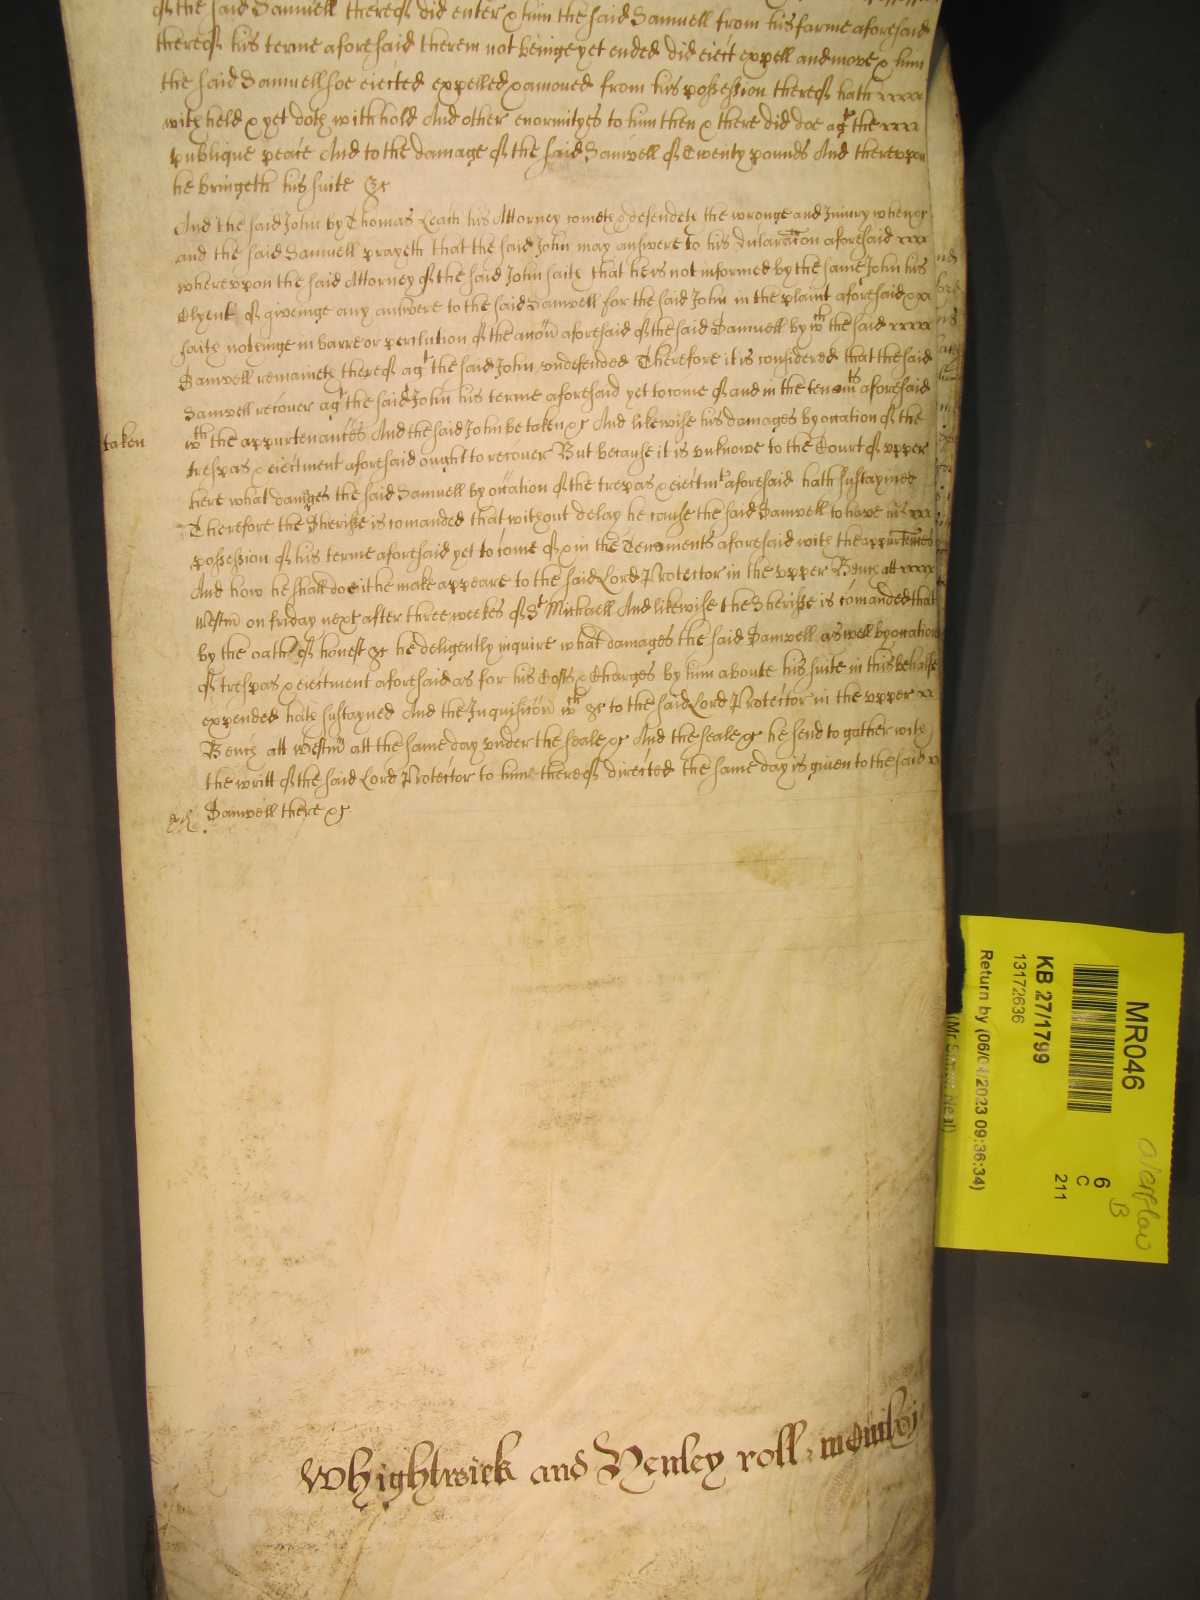 of the said Samuell thereof did enter & him the said Samuell from his farme aforesaid
thereof his terme aforesaid therein not beinge yet ended did eiect expell and move & him
the said Samuell soe eiected expelled & amoued from his possession thereof hath
with held & yet doth withhold And other enormityes to him then & there did doe agt the
publique peace And to the damage of the said Samuell of Twenty pounds And therevpon
he bringeth his suite &c
And the said John by Thomas Leach his Attorney cometh & defendeth the wronge and Iniury when &c
and the said Samuell prayeth that the said John may answere to his declaracon aforesaid
wherevpon the said Attorney of the said John saith that he is not informed by the same John his
Clyent of giveinge any answere to the said Samuell for the said John in the plaint aforesaid &
saith nothinge in barre or preclution of the accon aforesaid of the said Samuell by wch the said
Samuell remaineth thereof agt the said John vndefended Therefore it is considered that the said
Samuell recouer agt the said John his terme aforesaid yet to come of and in the tenemts aforesaid
taken
wth the appurtenances And the said John be taken &c And likewise his damages by occation of the
trespas & eiectment aforesaid ought to recouer But because it is vnknowe to the Court of vpper
here what damages the said Samuell by occation of the trespas & eiectmt aforesaid hath sustayined
Therefore the Sheriffe is comanded that without delay he cause the said Samuell to have his
possession of his terme aforesaid yet to come of & in the Tenements aforesaid with the appurtences
And how he shall doe it he make appeare to the said Lord Protector in the vpper Bench att
Westm on friday next after three weekes of St Michaell And likewise the Sheriffe is comanded that
by the oath of honest &c he deligently inquire what damages the said Samuell as well by occation
of trespas & eiectment aforesaid as for his Costs & Charges by him aboute his suite in this behalfe
expended hath sustayned And the Inquisicon wch &c to the said Lord Protector in the vpper
Bench att Westm att the same day vnder the seale &c And the seale &c he send to gather with
the writt of the said Lord Protector to him thereof directed the same day is giuen to the said
Samuell there &c
Whightwick and Henley roll
MR046
KB 27/1799
13172636
Return by (06/04/2023 09:36:34)
6
C
211
overflow
B